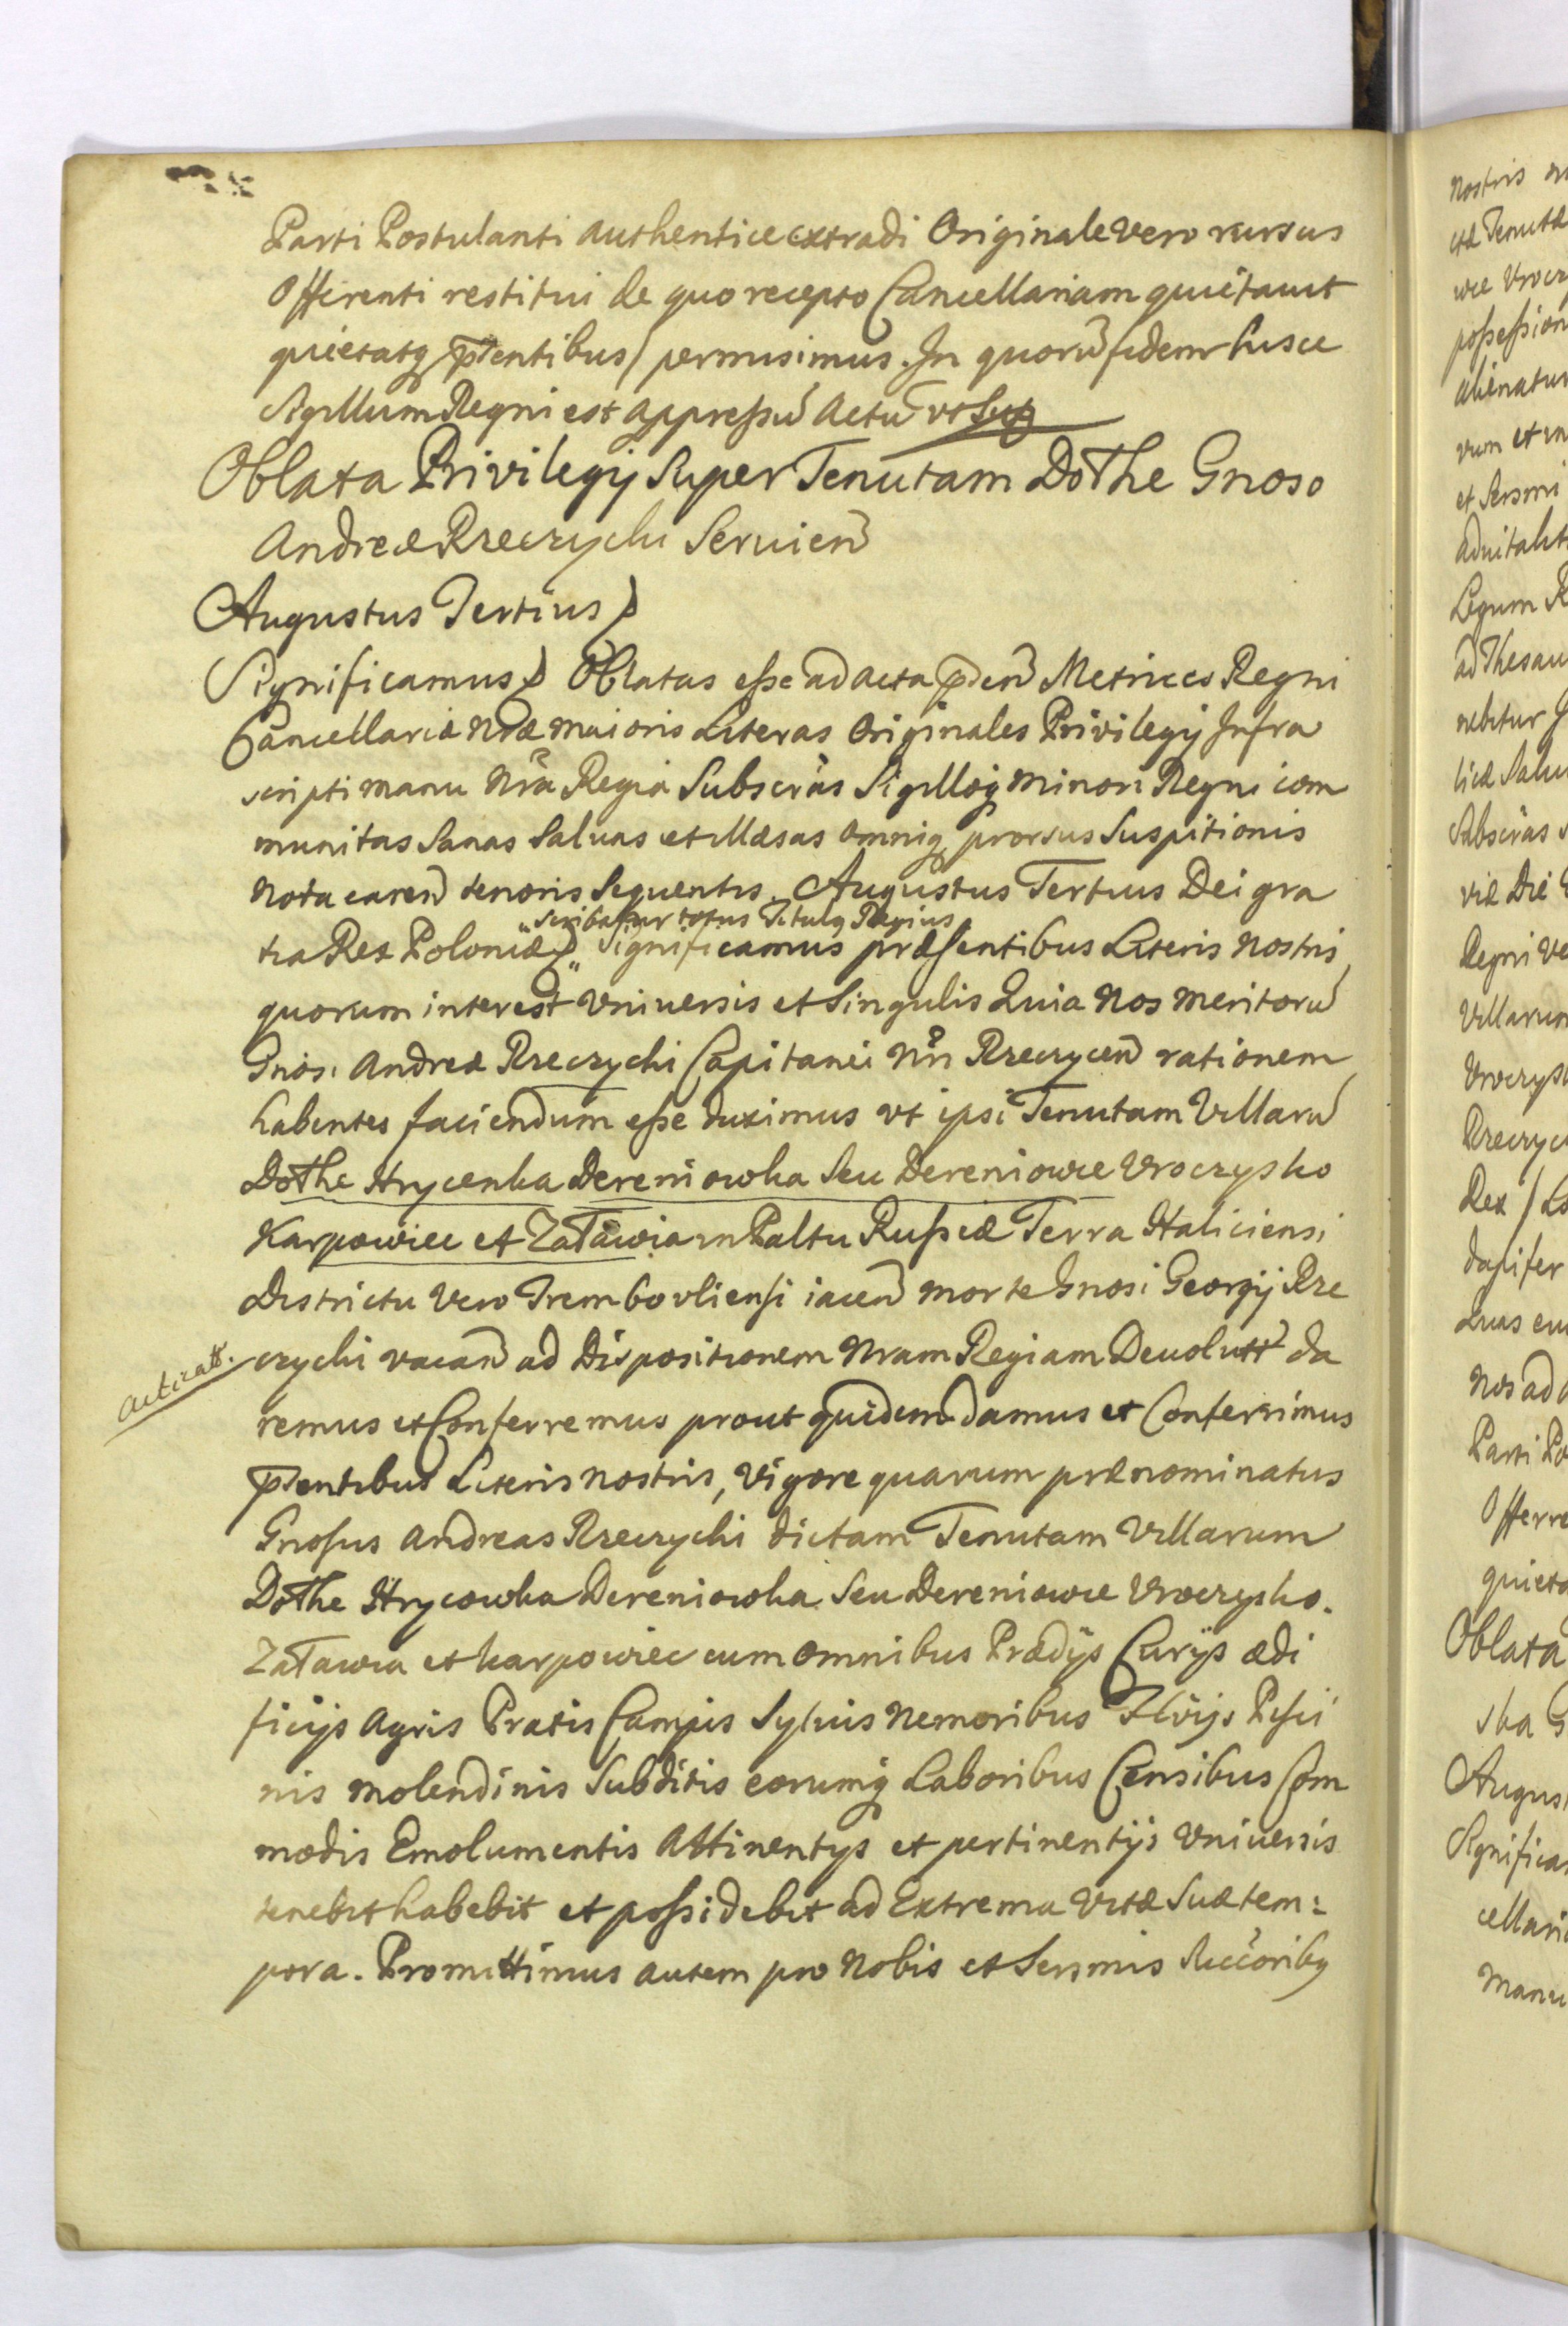 Parti Postulanti authentice extradi Originale vero rursus
Offerenti restitui de quo recepto Cancellariam quietavit
quietatq p̄ntibus permisimus. In quorū fidem hisce
Sigillum Regni est appreßū Actū vt Supͣ
Oblata Privilegij Super Tenutam Dołhe Gnoso
Andreæ Rzeczycki Seruien̄
Augustus Tertius
Significamus Oblatas eße ad acta p̄den̄ Metrices Regni
Cancellariæ Nr̄æ maioris Literas Originales Privilegij Infra
scripti manu Nr̄a Regia Subscr̄as Sigilloq minori Regni com
munitas Sanas Saluas et Illæsas omniq prorsus Suspitionis
Nota caren̄ tenoris Sequentis. Augustus Tertius Dei gra
„Scribatur totus Titulq Regius
tia Rex Poloniæ „ Significamus præsentibus Literis Nostris
quorum interest Vniuersis et Singulis Quia Nos meritorū
Gnosi Andreæ Rzeczycki Capitanei Nri Rzeczycen̄ rationem
habentes faciendum eße duximus vt ipsi Tenutam Villarū
Dołhe Hrycenka Dereniowka Seu Dereniowce Vroczysko
Karpowiec et Załawia in Paltu Rußiæ Terra Haliciensi
Districtu Vero Trembovliensi iacen̄ morte Gnosi Georgij Rze
czycki vacan̄ ad Dispositionem Nram Regiam Deuolutt da
remus et Conferremus prout quidem damus et Conferimus
p̄ntibus Literis nostris, Vigore quarum prænominatus
Gnosus Andreas Rzeczycki dictam Tenutam Villarum
Dołhe Hrycowka Dereniowka Seu Dereniowce Vroczysko.
Załawia et karpowiec cum omnibus Prædijs Curijs ædi
ficijs Agris Pratis Campis Syluis Nemoribus Flvijs Pisci
nis molendinis Subditis eorumq Laboribus Censibus Com
modis Emolumentis Attinentys et pertinentijs Vniuersis
tenebit habebit et poßidebit ad Extrema Vitæ Suæ tem:
pora. Promittimus autem pro Nobis et Sersmis Succ̄oribq